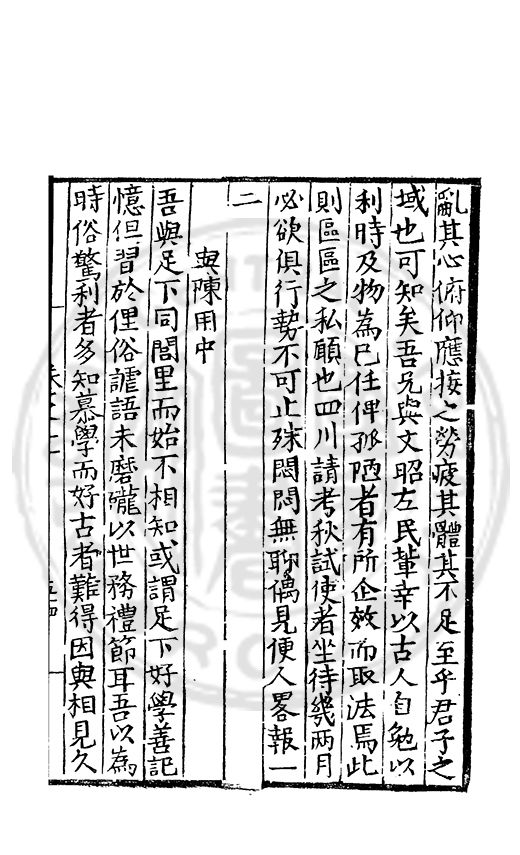 亂其心俯仰應接之勞疲其體其不足至乎君子之
域也可知矣吾兄與文昭左民輩幸以古人自勉以
利時及物為己任俾孤陋者有所企效而取法焉此
則區區之私願也四川請考秋試使者坐待幾兩月
必欲俱行勢不可止殊悶悶無聊偶見便人畧報一
二
與陳用中
吾與足下同閭里而始不相知或謂足下好學善記
憶但習於俚俗謔語未磨礲以世務禮節耳吾以為
時俗騖利者多知慕學而好古者難得因與相見久